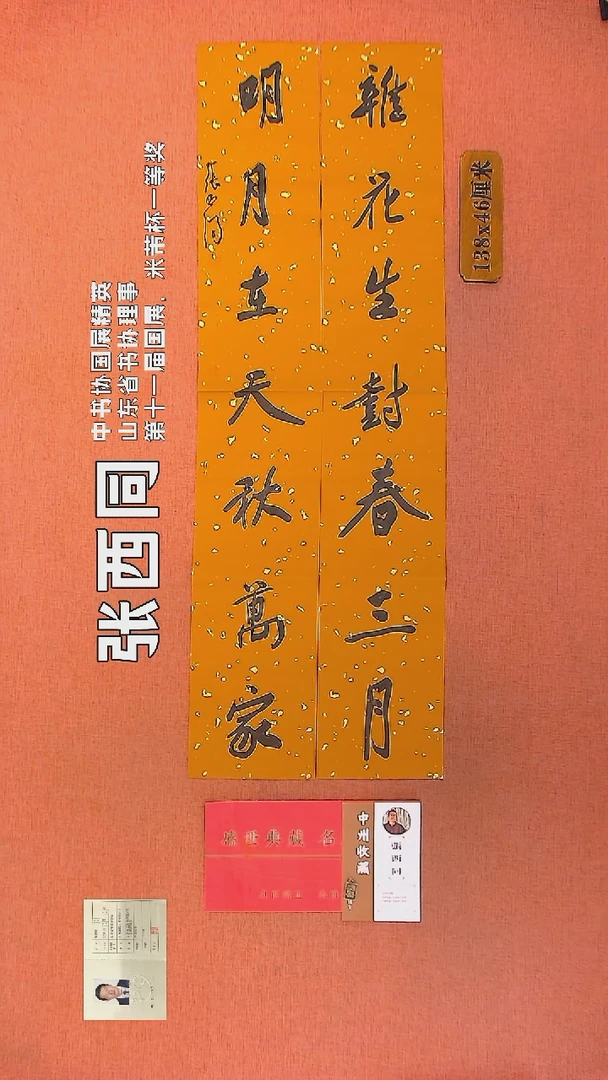 雜花生樹春三月
明月在天秋萬家
138x46厘米
张西同
中书协国展精英
山东省书协理事
第十一届国展、米芾杯一等奖
盛世典藏 名
中州收藏
张西同